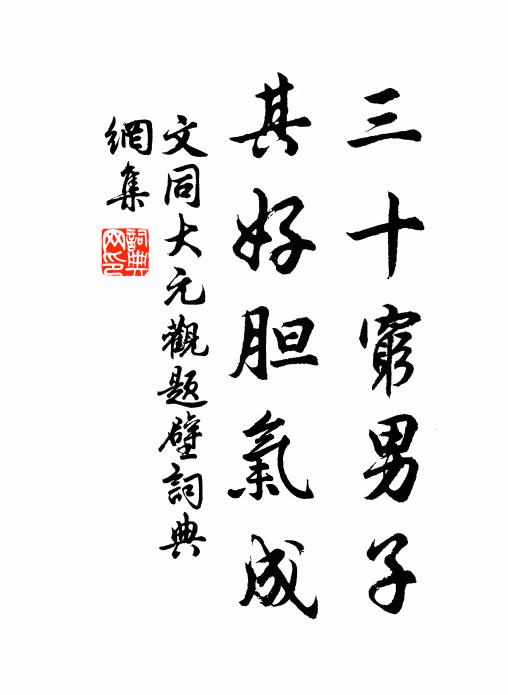 三十窮男子
其好胆氣成
文同大元觀題壁詞典
網集
詞典网印